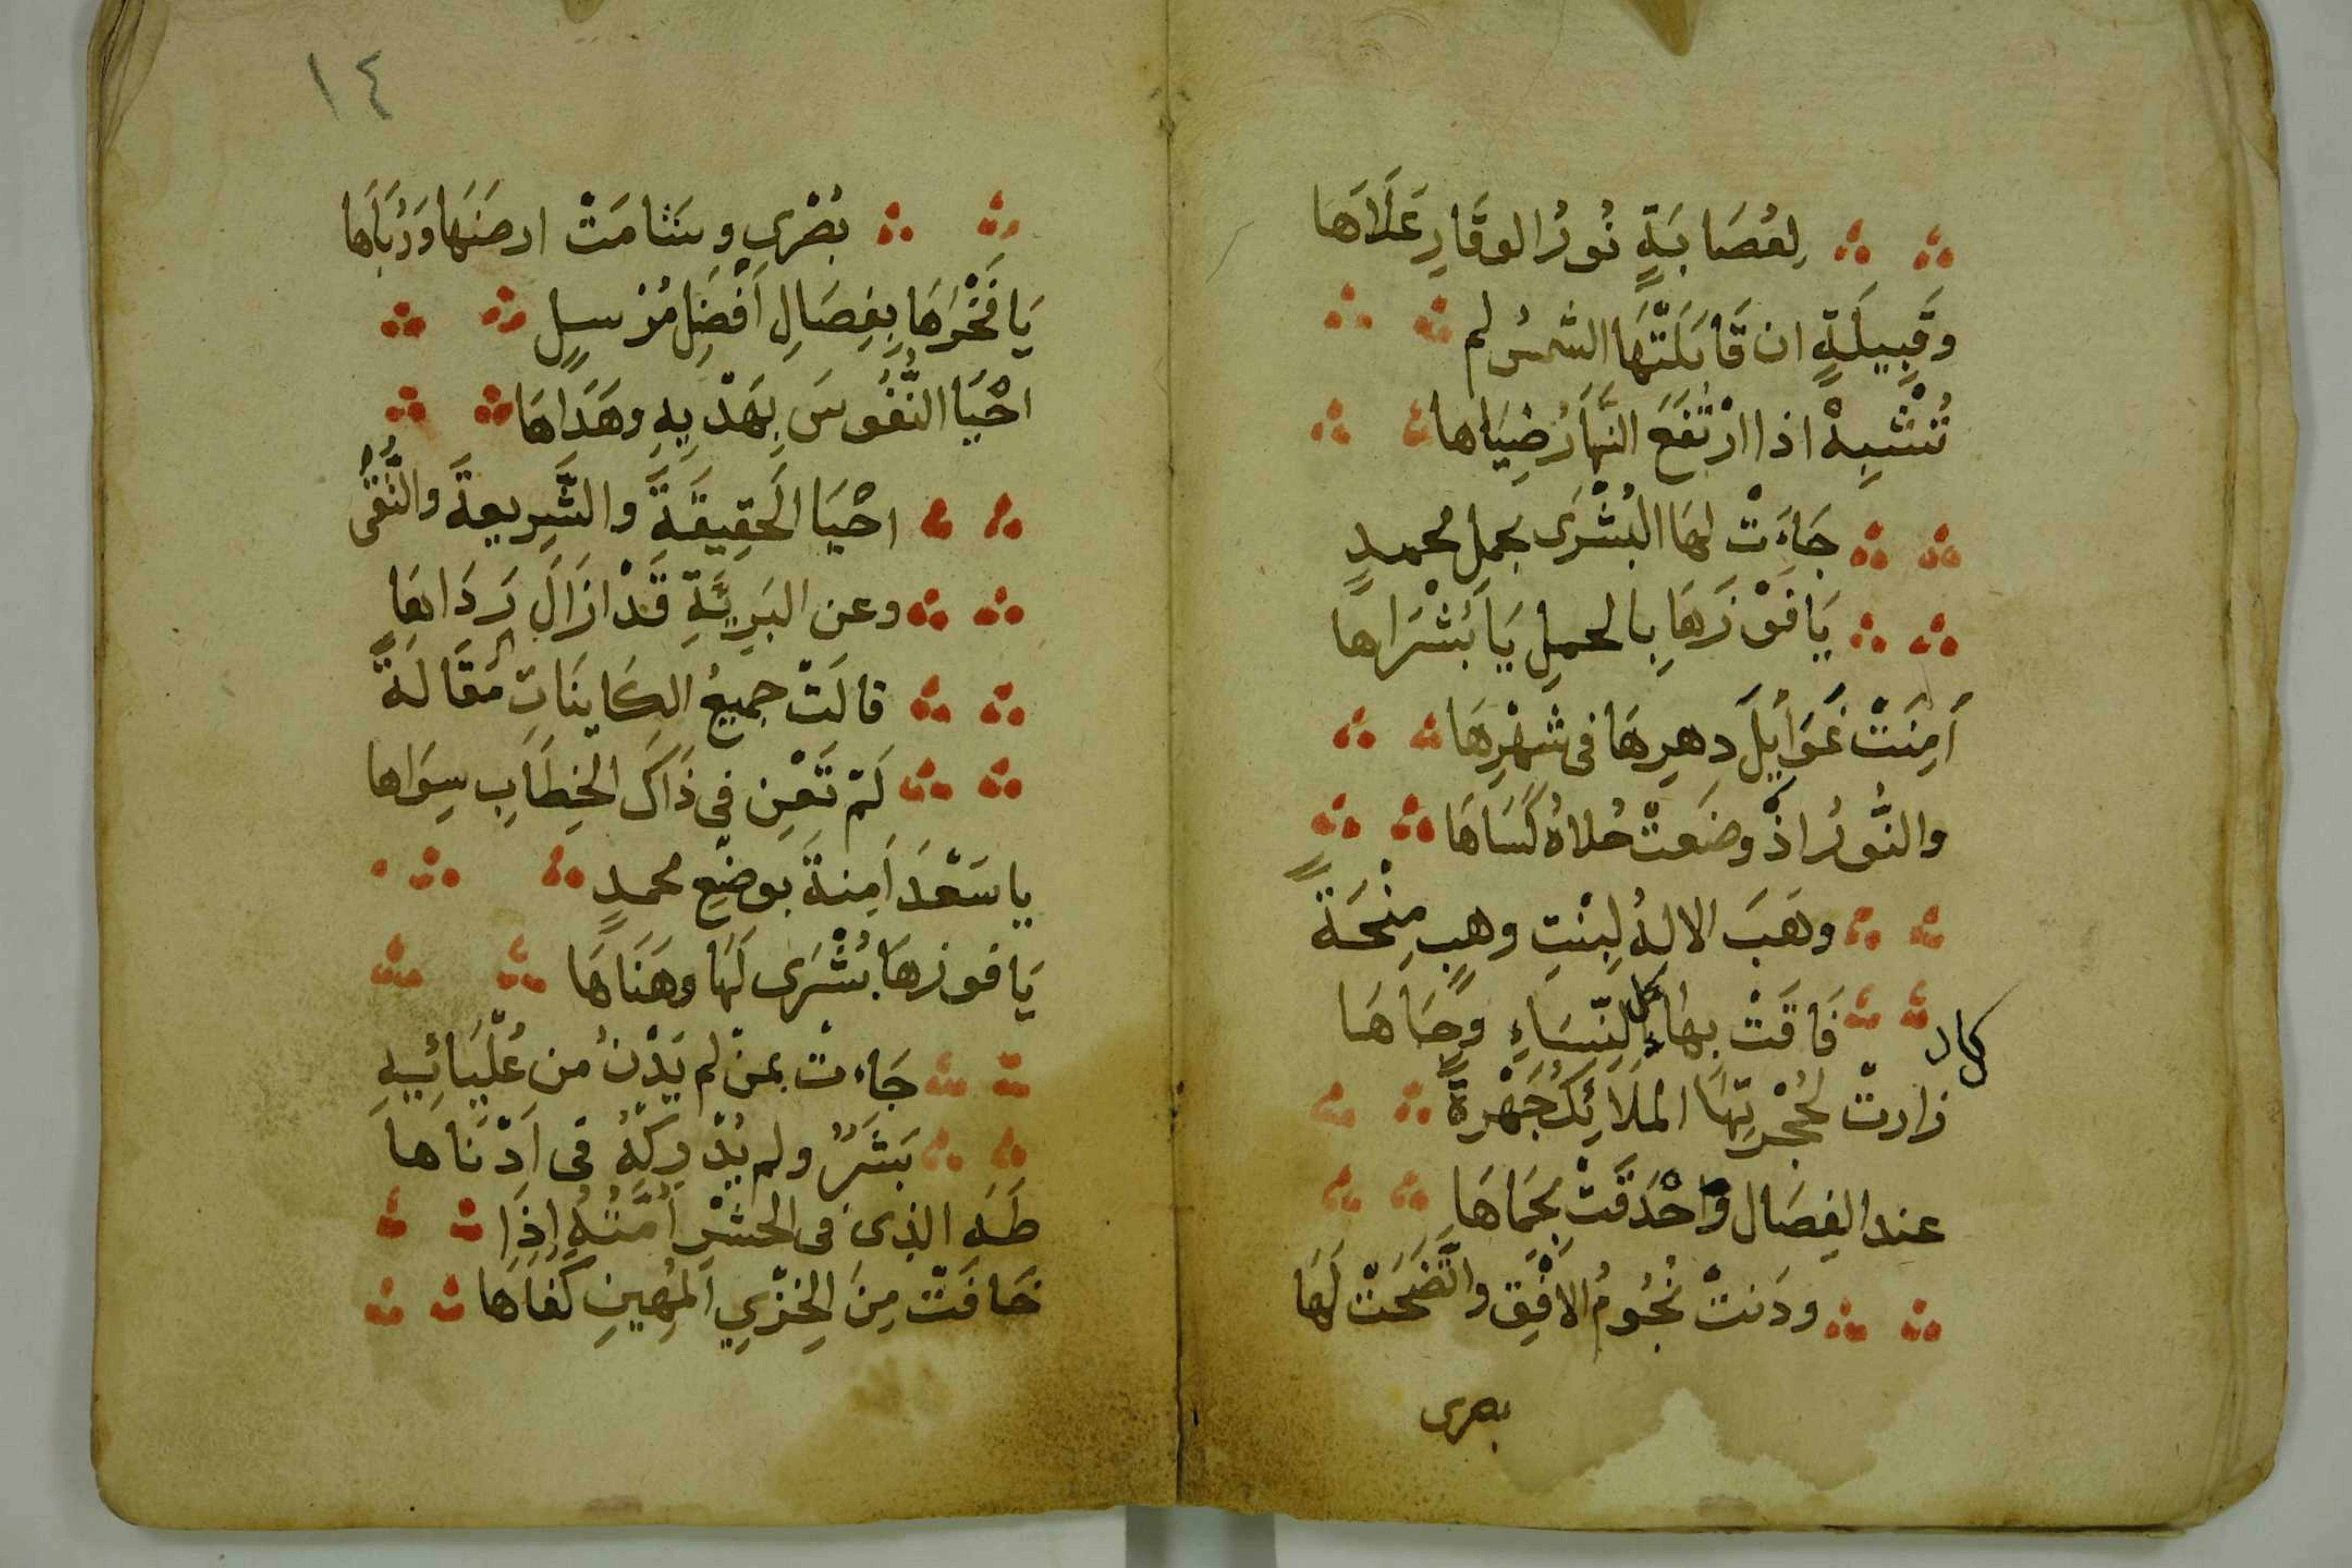 لِعُصَابَةٍ نُورُ الوقَارِ عَلَاهَا
وقَبِيلَةٍ ان قَابَلَتْهَا الشمسُ لم
تُنْشِبِهْ اذا ارْتَفَعَ النَّهَارُ ضِيَاها
جَاءَتْ لهَا البُشْرَى بحمل محمدٍ
يَا فَوْزَهَا بِالحملِ يَا بُشْرَاها
اَمِنَتْ غَوَايِلَ دهرِهَا فى شهْرِهَا
والنُّورُ اذْ وضَعتْ حُلاهُ كَسَاهَا
وهَبَ الالهُ لِبِنْتِ وهبٍ مِنْحَةً
فَاقَتْ بهَا كل النِّسَاءِ وجَاهَا
كاد
زارتْ لحُجْرتِهَا الملَائِكُ جَهْرةً
عند الفِصَال وَاحْدَقَتْ بحِمَاهَا
ودَنتْ نُجُومُ الافْقِ واتَّضَحَتْ لَهَا
بصرى
١٤
بُصْرى وشَامَتْ ارضَهَا ورُبَاها
يَا فَخْرَهَا بِفِصَالِ اَفْضَلِ مُرْسلٍ
احْيَا النُّفُوسَ بِهَدْيِهِ وهَدَاهَا
احْيَا الحَقِيقَةَ والشَّرِيعةَ والتُّقَى
وعن البَرِيَّةِ قَدْ ازَالَ رَدَاهَا
قالَتْ جميعُ الكَاينَاتِ مَقَالَةً
لَمْ تَعْنِ فى ذَاكَ الخِطَابِ سِوَاها
يا سَعْدَ اَمِنةَ بوضْعِ محمدٍ
يَا فوزهَا بُشْرَى لَهَا وهَنَاهَا
جَاءتْ بمنْ لم يَدْنُ من عُلْيَائِهِ
بَشَرٌ ولم يُدْرِكْهُ فى اَدْنَاهَا
طَهَ الذِى فى الحشْرِ اُمَّتُهُ اِذَا
خَافَتْ مِنَ الخِزْيِ المُهِينِ كَفَاهَا